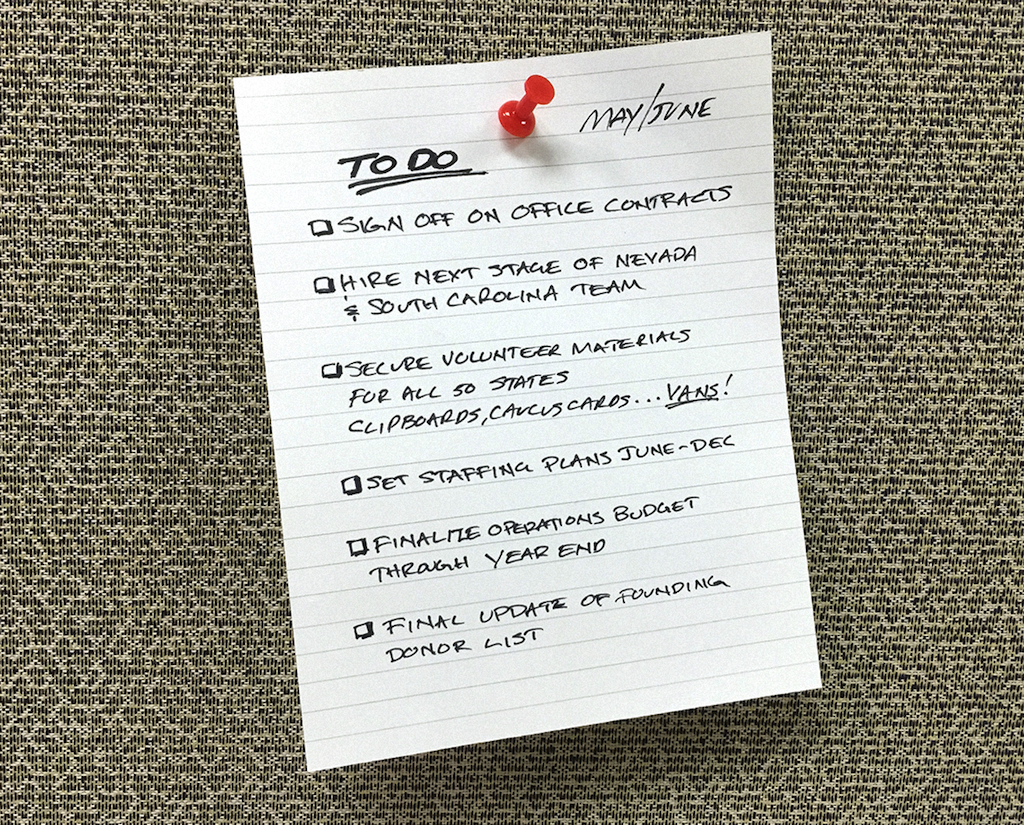 MAY/JUNE
TO DO
SIGN OFF ON OFFICE CONTRACTS
HIRE NEXT STAGE OF NEVADA
& SOUTH CAROLINA TEAM
SECURE VOLUNTEER MATERIALS
FOR ALL 50 STATES
CLIPBOARDS, CAUCUS CARDS... VANS!
SET STAFFING PLANS JUNE-DEC
FINALIZE OPERATIONS BUDGET
THROUGH YEAR END
FINAL UPDATE OF FOUNDING
DONOR LIST